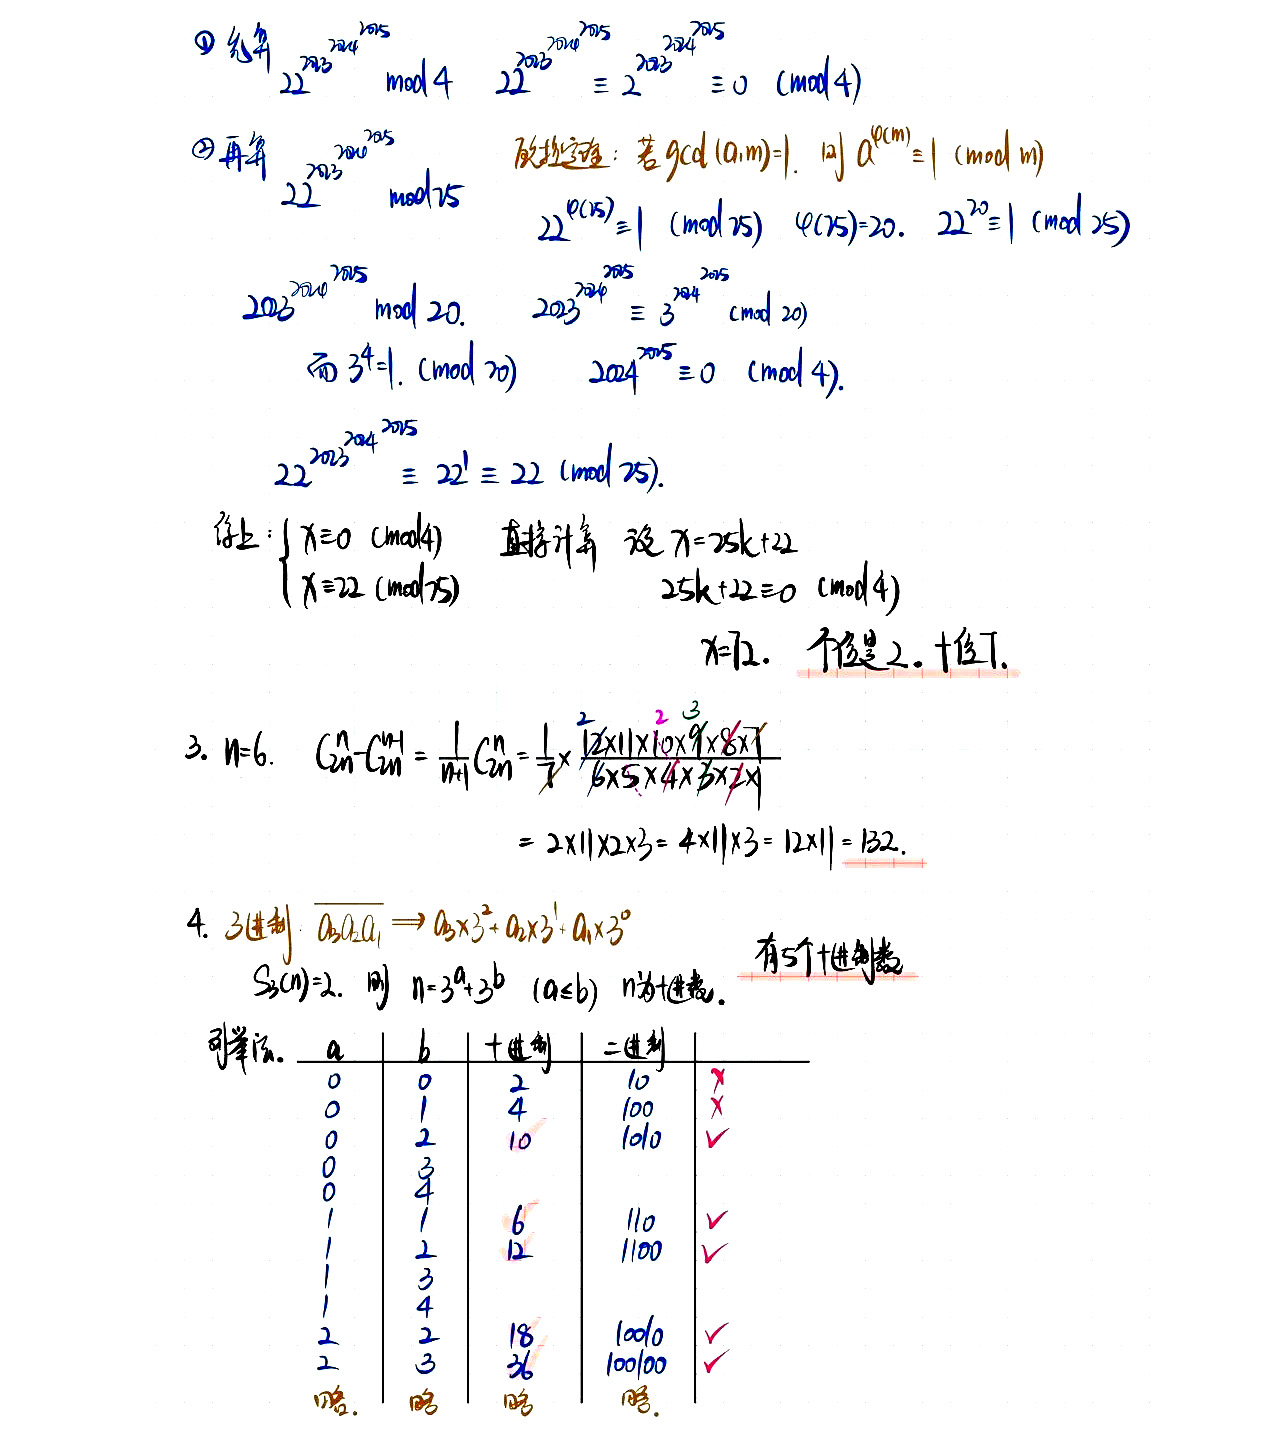 ① 先算 22^{2023^{2024^{2025}}} mod 4 22^{2023^{2024^{2025}}} ≡ 2^{2023^{2024^{2025}}} ≡ 0 (mod 4)
② 再算 22^{2023^{2024^{2025}}} mod 25 欧拉定理: 若 gcd(a,m)=1. 则 a^{φ(m)} ≡ 1 (mod m)
22^{φ(25)} ≡ 1 (mod 25) φ(25)=20. 22^{20} ≡ 1 (mod 25)
2023^{2024^{2025}} mod 20. 2023^{2024^{2025}} ≡ 3^{2024^{2025}} (mod 20)
而 3^4=1. (mod 20) 2024^{2025} ≡ 0 (mod 4).
22^{2023^{2024^{2025}}} ≡ 22^1 ≡ 22 (mod 25).
综上: { x≡0 (mod 4) 直接计算 设 x=25k+22
x≡22 (mod 25) 25k+22≡0 (mod 4)
x=72. 个位是2. 十位7.
3. n=6. C_{2n}^{n} - C_{2n}^{n-1} = \frac{1}{n+1} C_{2n}^{n} = \frac{1}{7} × \frac{12×11×10×9×8×7}{6×5×4×3×2×1} 2 2 3
= 2×11×2×3 = 4×11×3 = 12×11 = 132.
4. 3进制. \overline{a_3a_2a_1} ⟹ a_3×3^2+a_2×3^1+a_1×3^0
有5个十进制数
S_3(n)=2. 则 n=3^a+3^b (a≤b) n为十进数.
列举法. a b 十进制 二进制
0 0 2 10 ×
0 1 4 100 ×
0 2 10 1010 ✓
0 3
0 4
1 1 6 110 ✓
1 2 12 1100 ✓
1 3
1 4
2 2 18 10010 ✓
2 3 36 100100 ✓
略. 略 略 略.